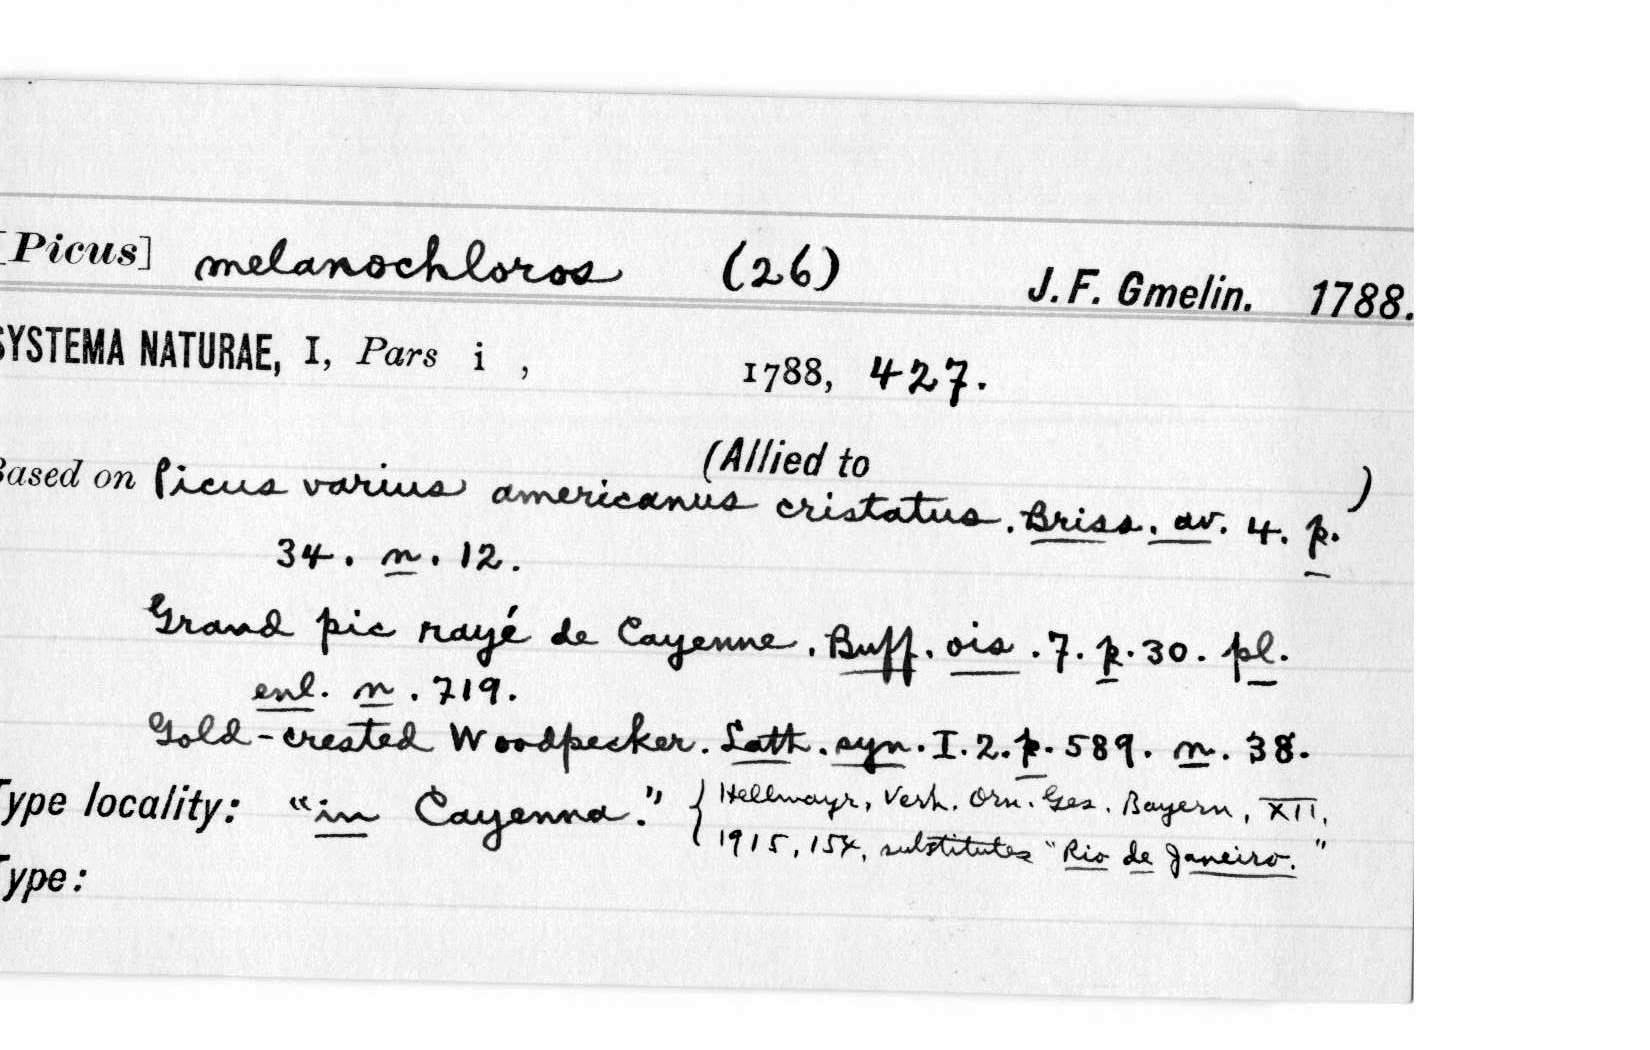 [Picus] melanochloros (26) J. F. Gmelin. 1788.
SYSTEMA NATURAE, I, Pars i , 1788, 427.
(Allied to )
Based on Picus varius americanus cristatus. Briss. av. 4. p.
34. n. 12.
Grand pic rayé de Cayenne. Buff. ois. 7. p. 30. pl.
enl. n. 719.
Gold-crested Woodpecker. Lath. syn. I. 2. p. 589. n. 38.
Type locality: "in Cayenna." { Hellmayr, Verh. Orn. Ges. Bayern, XII,
1915, 154, substitutes "Rio de Janeiro."
Type: